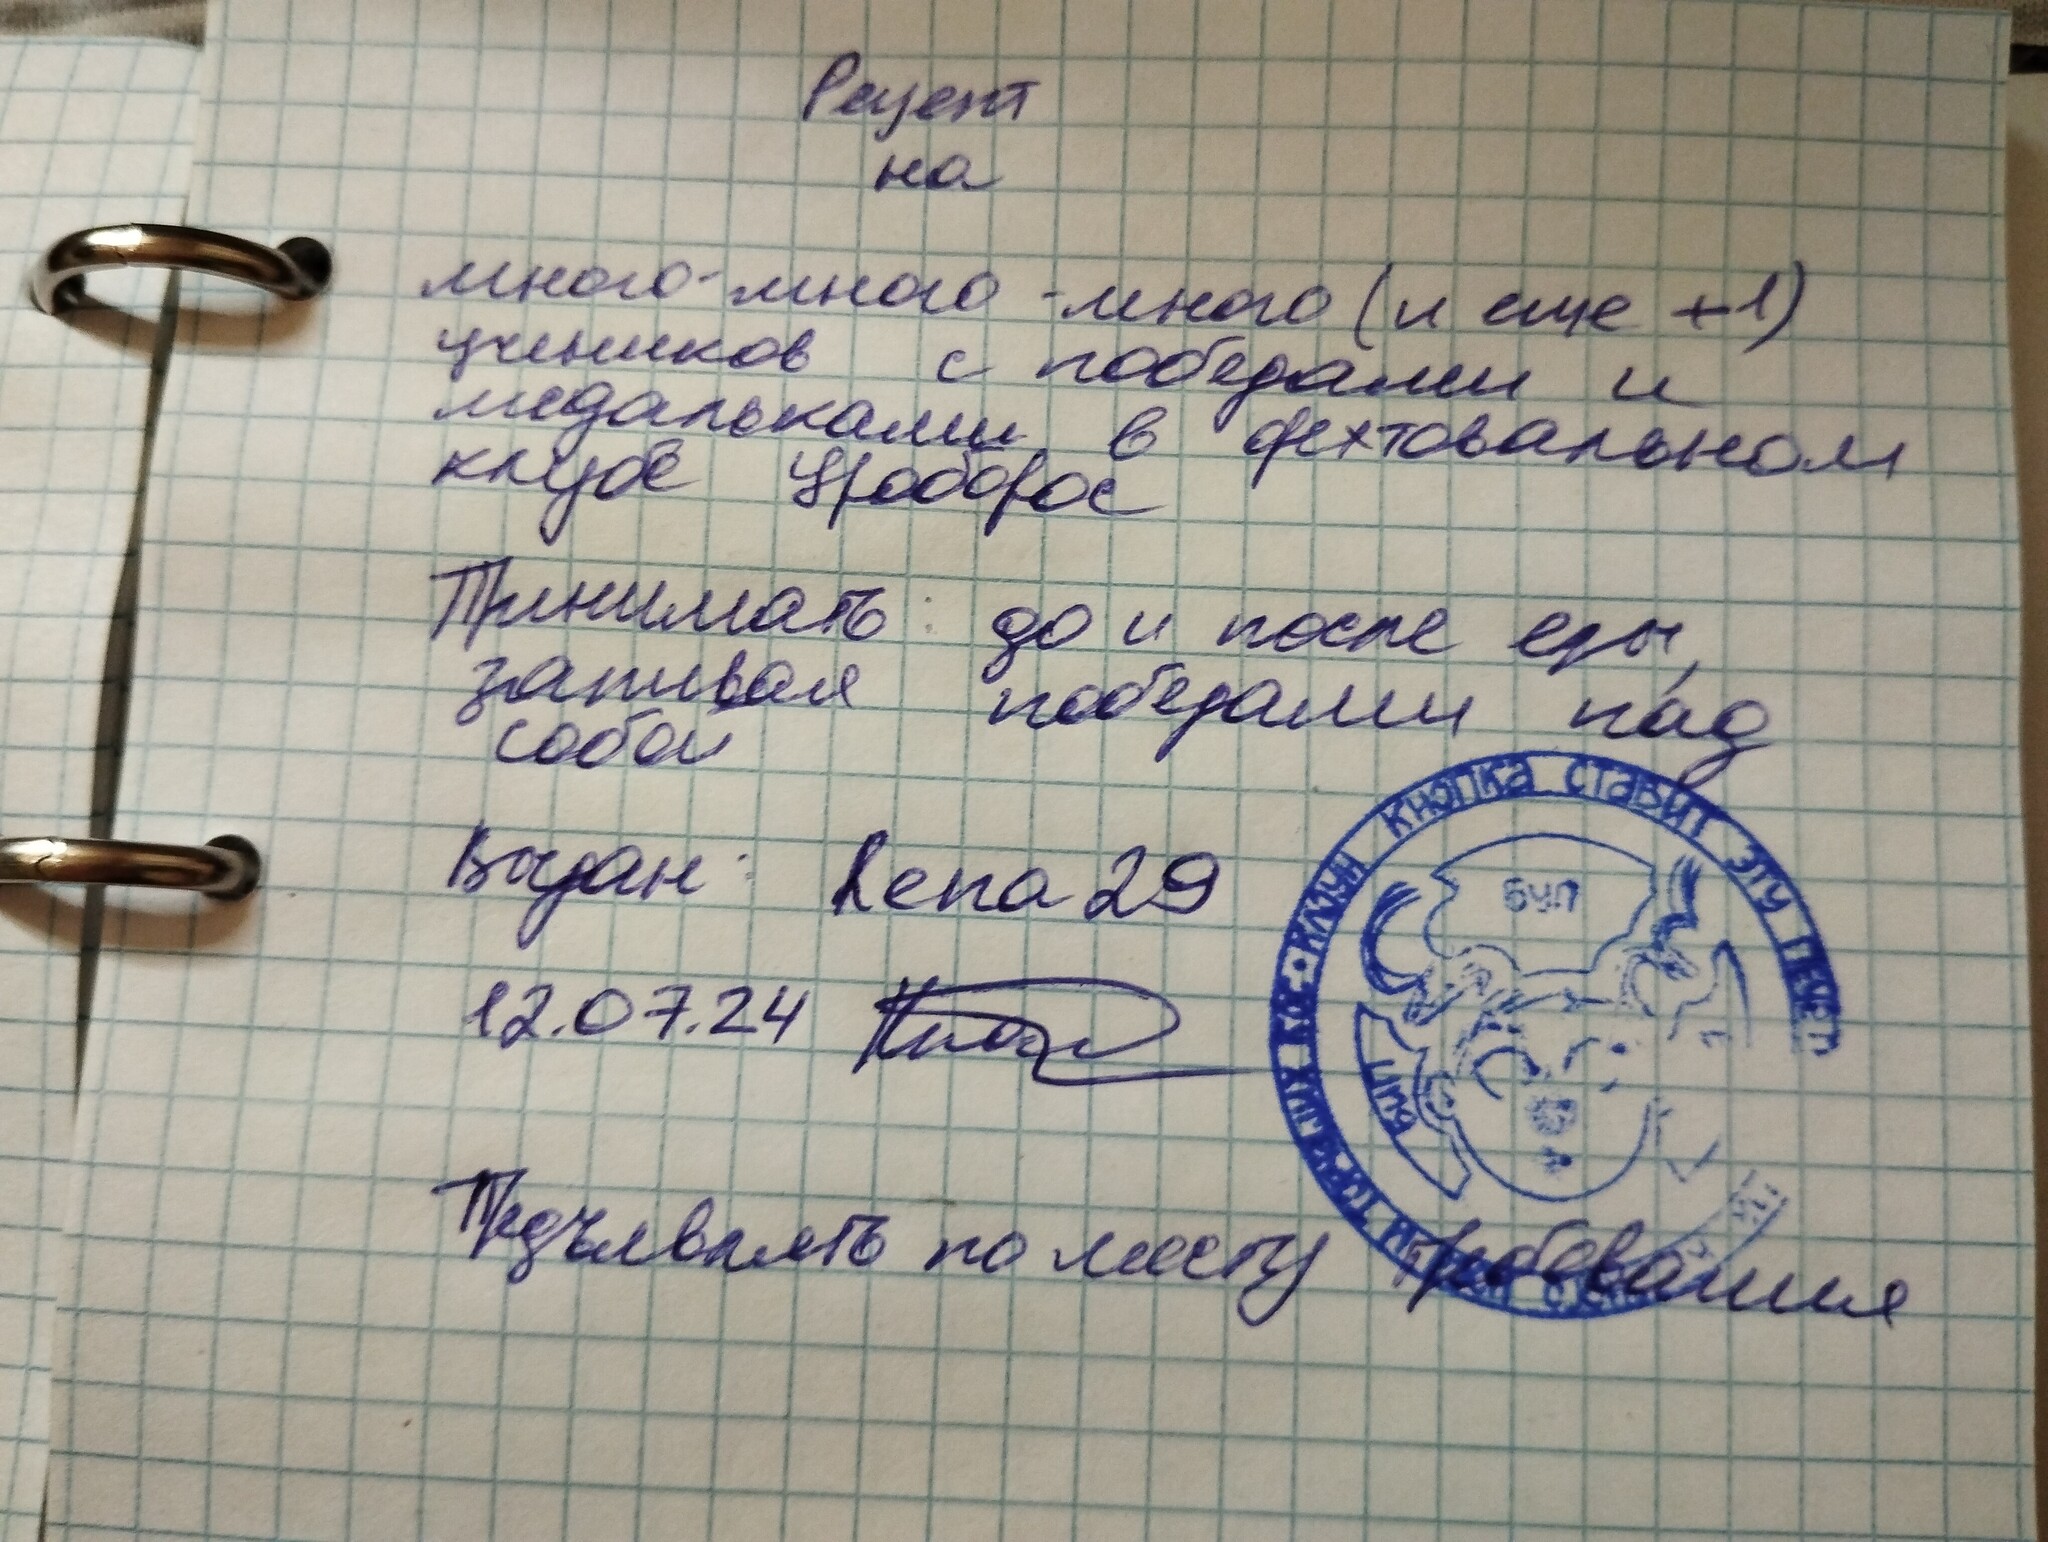 Рецепт
на
много-много-много (и еще +1)
учеников с победами и
медальками в фехтовальном
клубе Уроборос
Принимать: до и после еды,
запивая победами над
собой
Выдан: Лепа 29
12.07.24
Предъявлять по месту требования
КЛОУН КНОПКА СТАВИТ ЭТУ ПЕЧАТ
БУП
БИП